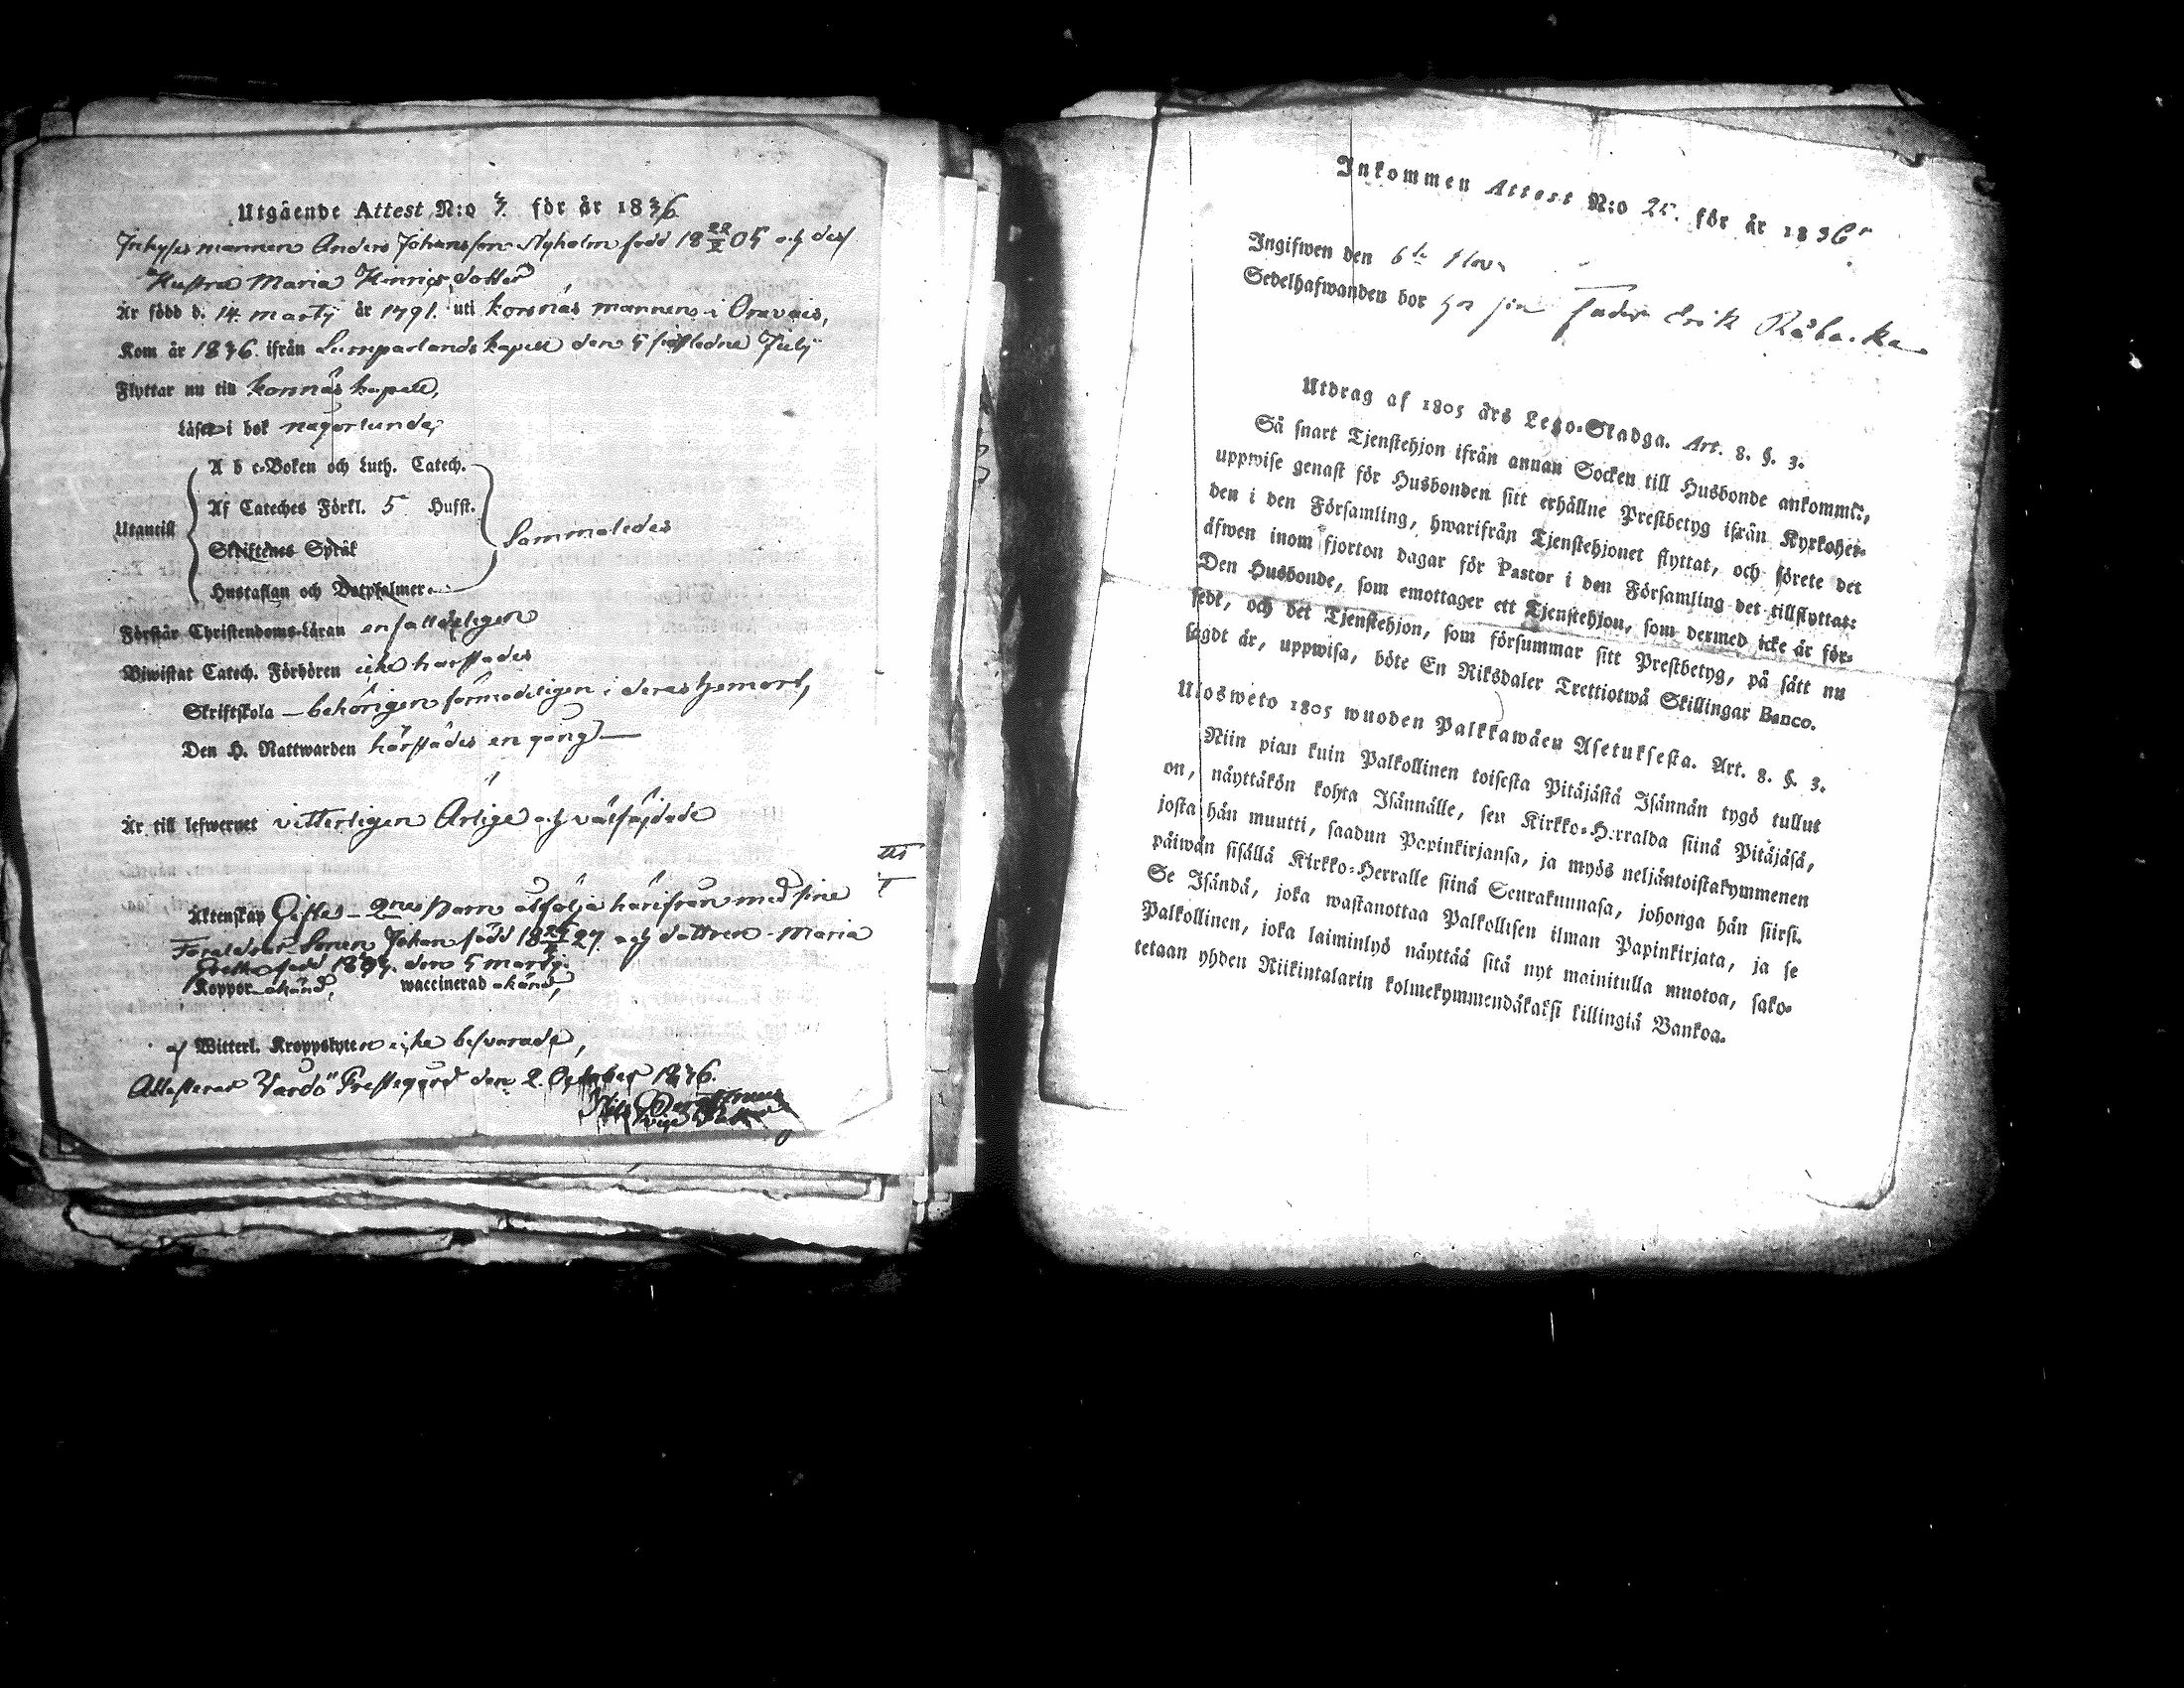 Utgående Attest N:o 7. för år 1836
Inhyses mannen Anders Johansson Nyholm född 18 22/X 05 och dess
Hustru Maria Hinricsdotter
Är född d. 14 marty år 1791. uti korsnäs mannens i Oravais,
Kom år 1836. ifrån Lumparlands kapell den 5 sistledne July
Flyttar nu till korsnäs kapell,
Läser i bok någorlunda,
A b c-Boken och Luth. Catech.
Af Cateches Förkl. 5 Hufst.
Utantill Sammaledes
Skriftenes Språk
Hustaflan och Botpsalmer.
Förstår Christendoms-Läran enfalldeligen
Biwistat Catech. Förhören icke härstädes
Skriftskola – behörigen förmodeligen i deras hemort,
Den H. Nattwarden härstädes en gång –
Är till lefwernet vitterligen Ärlige och välfräjdade
Äktenskap Gifte – 2nes Barn åtfölja härifrån med sine
Föräldrar Sonen Johan född 18 27 och dottren Maria
Greta född den 5 marty.
Koppor okänd, waccinerad okänd,
af Witterl. Kroppslyten icke besvärade,
Attesterar Vårdö Prestegård den 2. October 1836.
Inkommen Attest N:o 25. för år 1836
Ingifwen den 6te Nov.
Sedelhafwanden bor hos sin fader Erik Råbacka
Utdrag af 1805 års Lego-Stadga. Art. 8. §. 3.
Så snart Tjenstehjon ifrån annan Socken till Husbonde ankommit,
uppwise genast för Husbonden sitt erhållne Prestbetyg ifrån Kyrkoher-
den i den Församling, hwarifrån Tjenstehjonet flyttat, och förete det
äfwen inom fjorton dagar för Pastor i den Församling det tillflyttat:
Den Husbonde, som emottager ett Tjenstehjon, som dermed icke är för-
sedt, och det Tjenstehjon, som försummar sitt Prestbetyg, på sätt nu
sagdt är, uppwisa, böte En Riksdaler Trettiotwå Skillingar Banco.
Ulosweto 1805 wuoden Palkkawäen Asetuksesta. Art. 8. §. 3.
Niin pian kuin Palkollinen toisesta Pitäjästä Isännän tygö tullut
on, näyttäkön kohta Isännälle, sen Kirkko-Herralda siinä Pitäjäsä,
josta hän muutti, saadun Papinkirjansa, ja myös neljäntoistakymmenen
päiwän sisällä Kirkko-Herralle siinä Seurakunnasa, johonga hän siirsi.
Se Isändä, joka wastanottaa Palkollisen ilman Papinkirjata, ja se
Palkollinen, joka laiminlyö näyttää sitä nyt mainitulla muotoa, sako-
tetaan yhden Riikintalarin kolmekymmendäkaksi killingiä Bankoa.